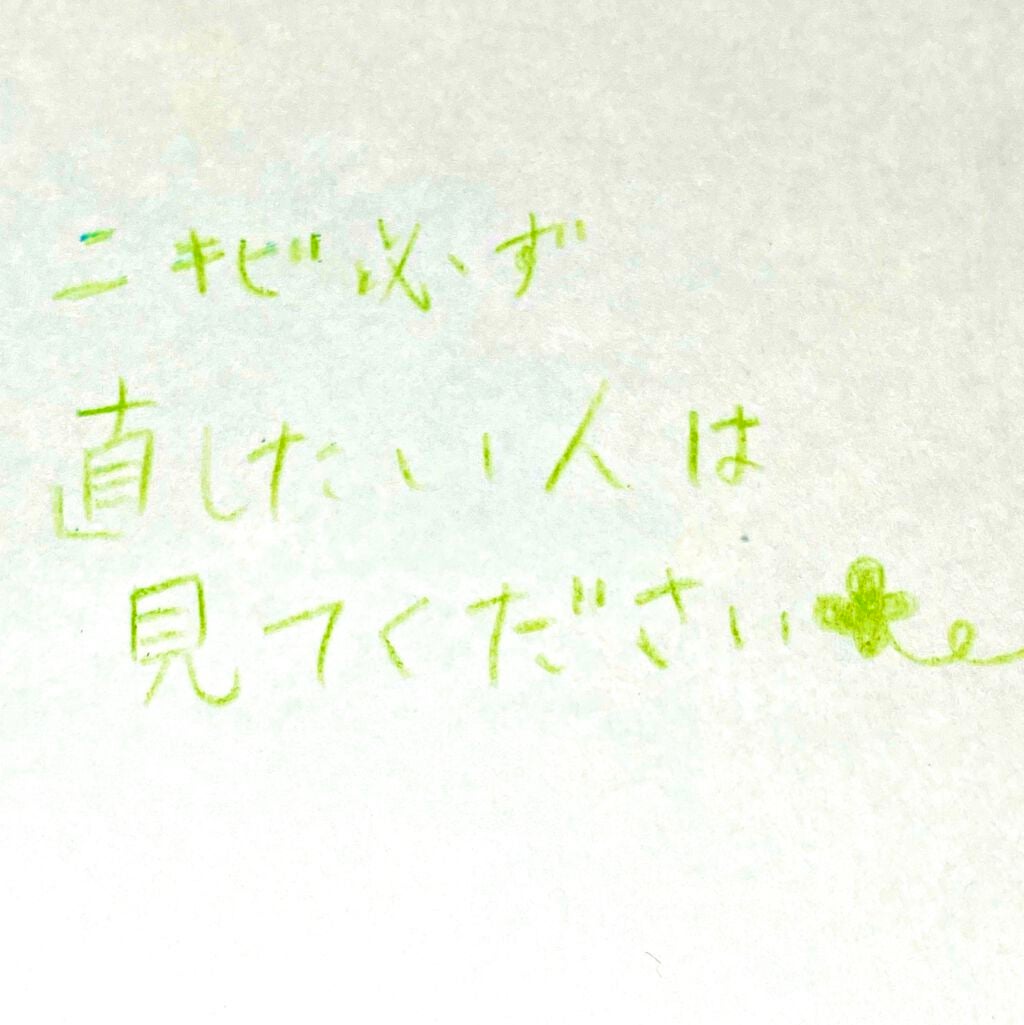 ニキビ必ず
直したい人は
見てください